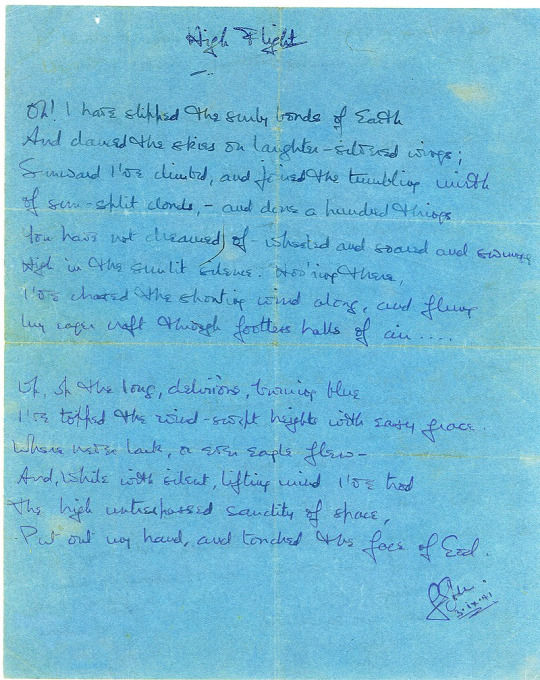 High Flight
Oh! I have slipped the surly bonds of Earth
And danced the skies on laughter-silvered wings;
Sunward I've climbed, and joined the tumbling mirth
of sun-split clouds, - and done a hundred things
You have not dreamed of - wheeled and soared and swung
High in the sunlit silence. Hov'ring there,
I've chased the shouting wind along, and flung
My eager craft through footless halls of air....
Up, up the long, delirious, burning blue
I've topped the wind-swept heights with easy grace.
Where never lark, or even eagle flew-
And, while with silent, lifting mind I've trod
The high untrespassed sanctity of space,
Put out my hand, and touched the face of God.
3.IX.41